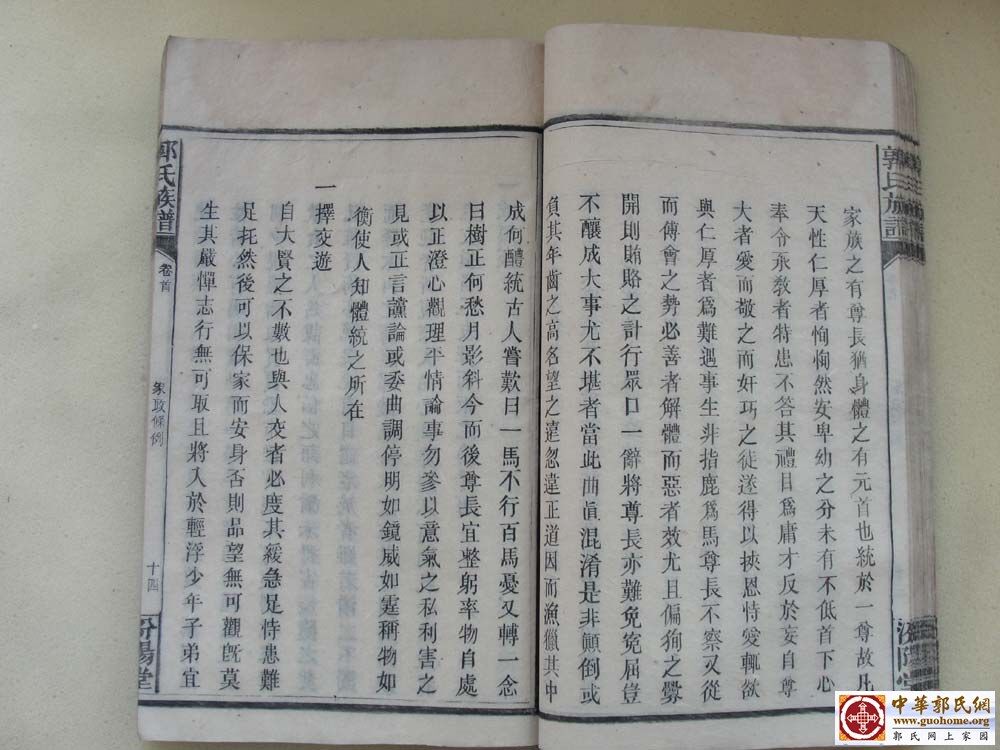 郭氏族譜
家族之有尊長猶身體之有元首也統於一尊故凡
天性仁厚者恂恂然安卑幼之分未有不低首下心
奉令承教者特患不答其禮目爲庸才反於妄自尊
大者愛而敬之而奸巧之徒遂得以挾恩恃愛輒欲
與仁厚者爲難遇事生非指鹿爲馬尊長不察又從
而傅會之势必善者解體而惡者效尤且偏狥之釁
開則賄賂之計行眾口一辭將尊長亦難免冤屈豈
不釀成大事尤不堪者當此曲眞混淆是非顚倒或
負其年齒之高名望之達忽違正道因而漁獵其中
成何體統古人嘗歎曰一馬不行百馬憂又轉一念
曰樹正何愁月影斜今而後尊長宜整躬率物自處
以正澄心觀理平情論事勿參以意氣之私利害之
見或正言讜論或委曲調停明如鏡威如霆稱物如
衡使人知體統之所在
一擇交遊
自大賢之不數也與人交者必度其緩急足恃患難
足托然後可以保家而安身否則品望無可觀旣莫
生其嚴憚志行無可取且將入於輕浮少年子弟宜
郭氏族譜
卷首
家政條例
十四
汾陽堂
中華郭氏網
www.guohome.org
郭氏网上家园